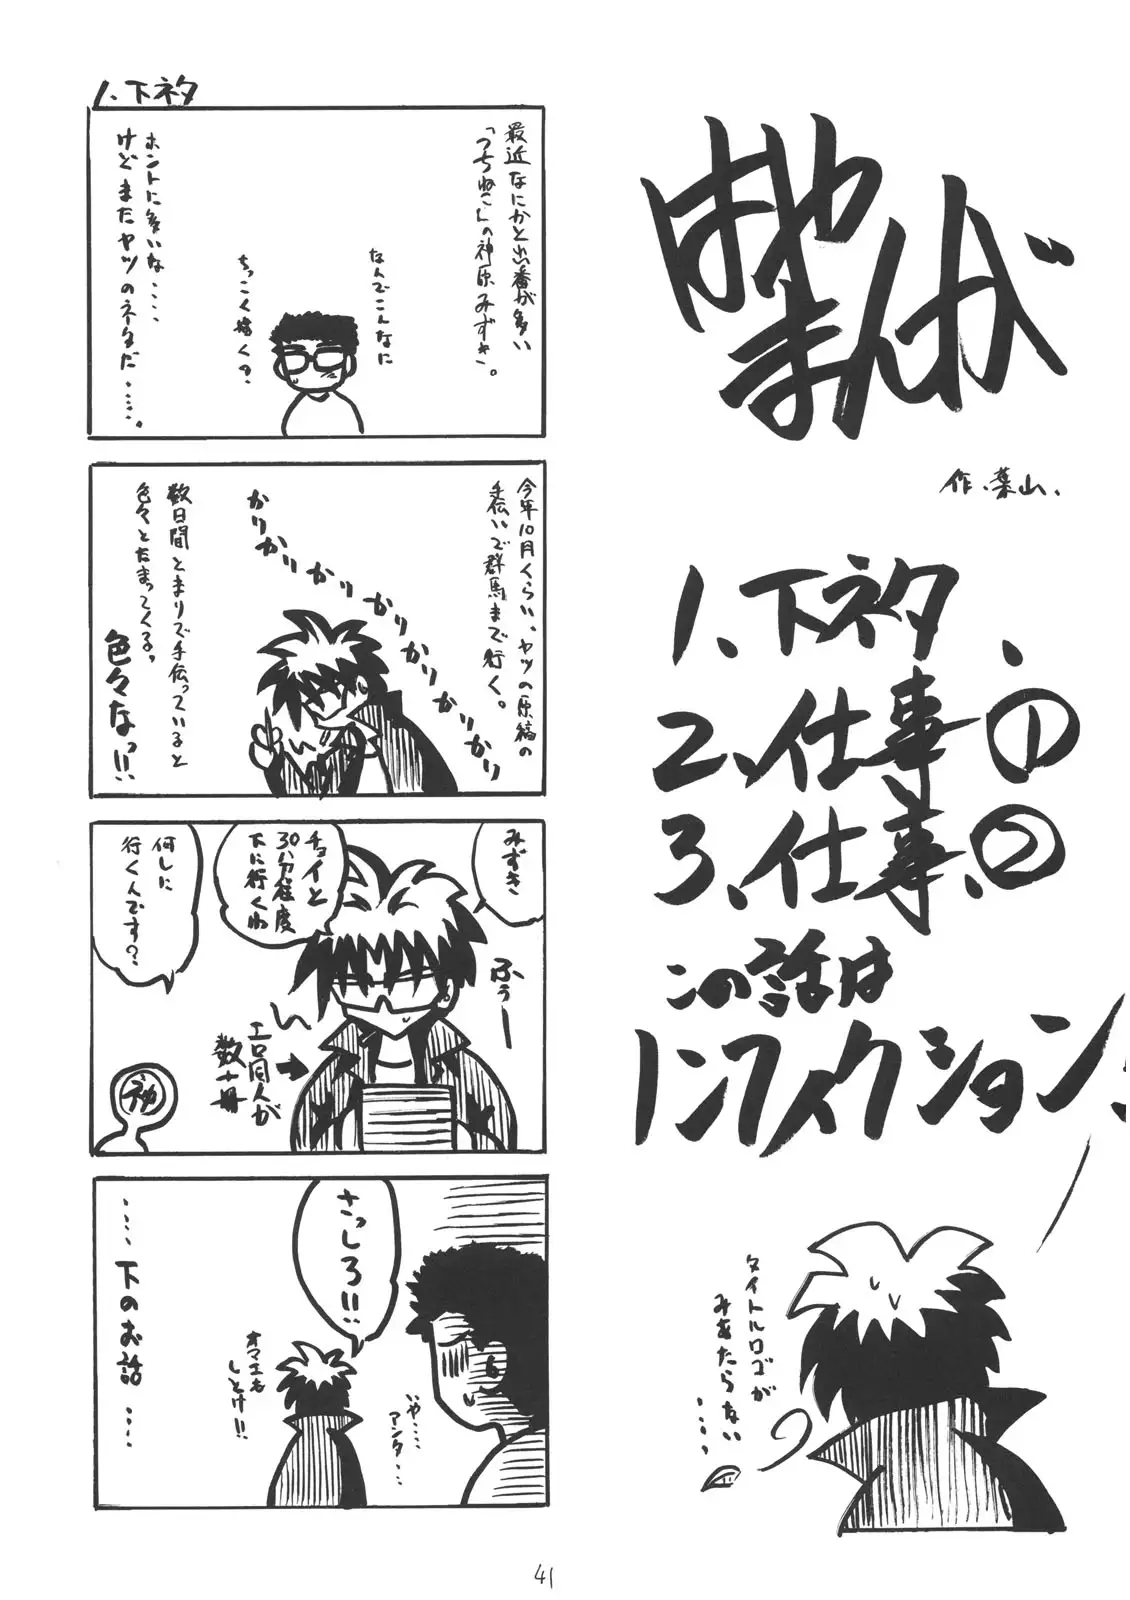 はやまんが
作、葉山、
1、下ネタ、
2、仕事①
3、仕事、②
この話は
ノンフィクション
タイトルロゴが
みあたらない
・・・・
1、下ネタ
最近なにかと出番が多い
「つちねこさんの神原みずき」。
なんでこんなに
ちっこく描くの?
ホントに多いな・・・・
けどまたヤツのネタだ・・・・・。
今年10月くらい、ヤツの原稿の
手伝いで群馬まで行く。
かりかりかりかりかりかりかりかり
数日間とまりで手伝っていると
色々とたまってくる。
色々なっ!!
みずき
チョイと
30分程度
下に行くわ
何しに
行くんです?
ふぅー
エロ同人が
数十冊
神
さっしろ!!
オマエも
しとけ!!
いや・・・・
アンタ・・・
・・・・下のお話・・・・
41